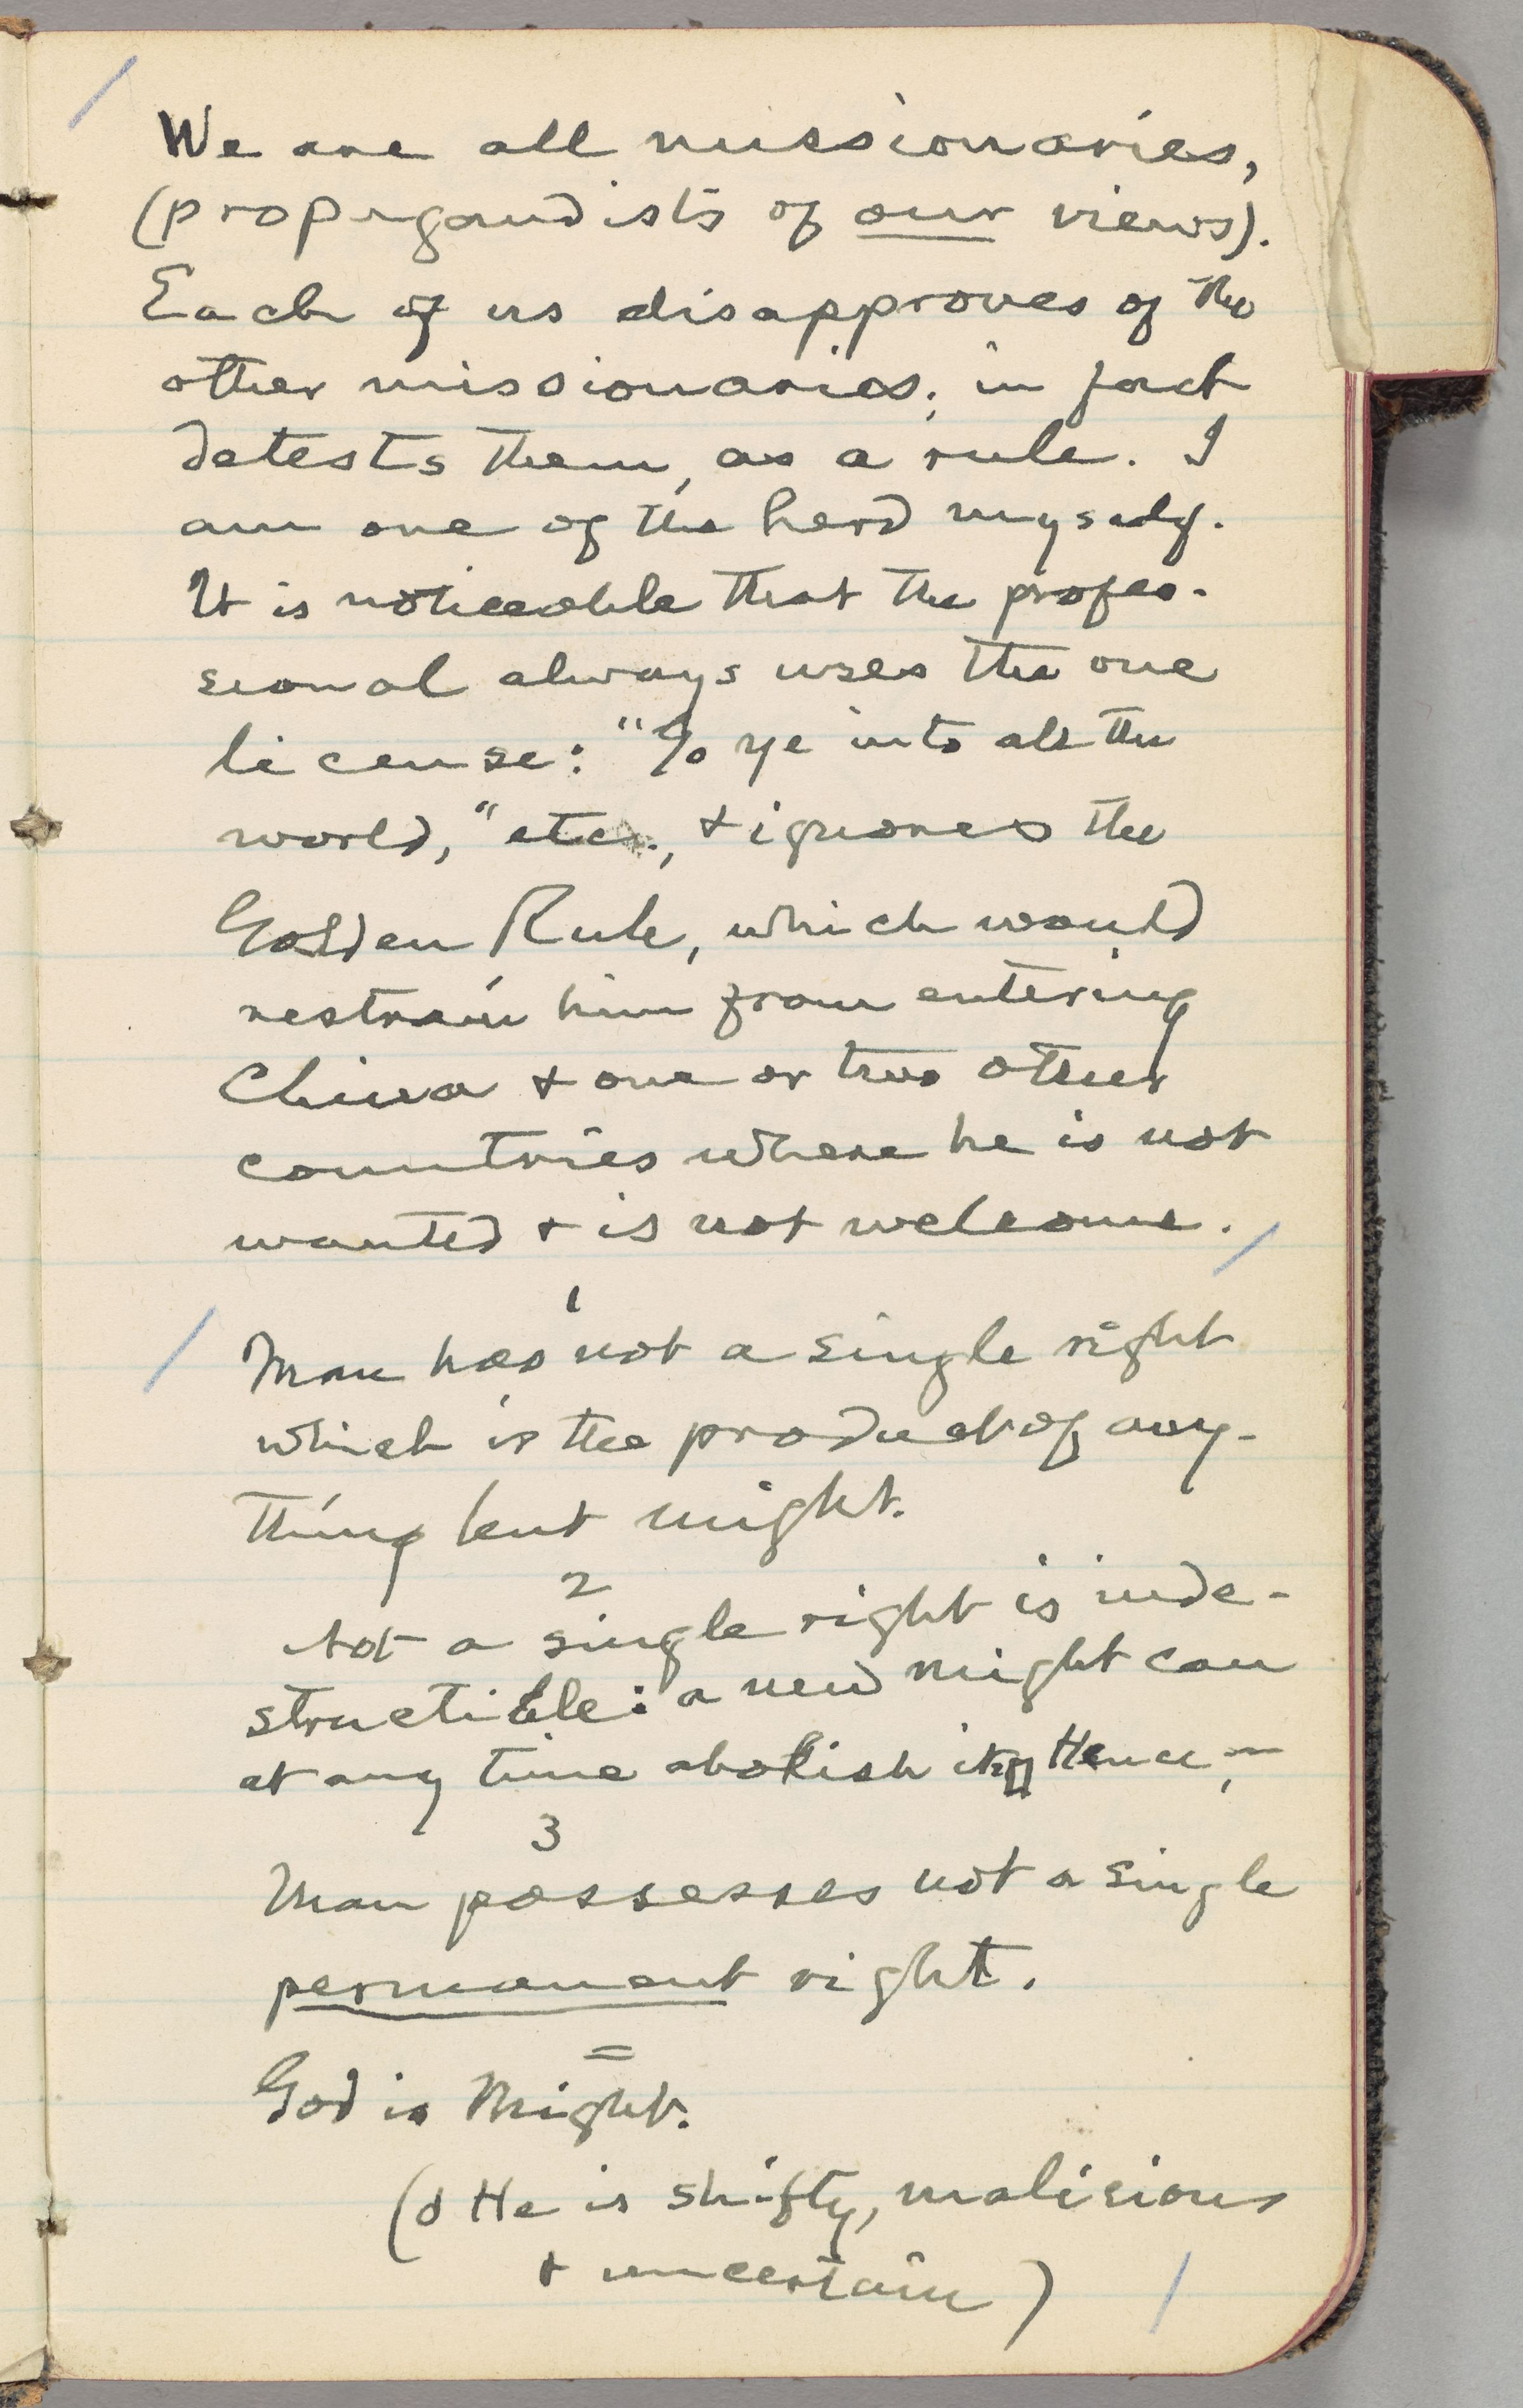 We are all missionaries,
(propagandists of our views).
Each of us disapproves of the
other missionaries; in fact
detests them, as a rule. I
am one of the herd myself.
It is noticeable that the profes-
sional always uses the one
license: "Go ye into all the
world," etc., & ignores the
Golden Rule, which would
restrain him from entering
China & one or two other
countries where he is not
wanted & is not welcome.
1
Man has not a single right
which is the product of any-
thing but might.
2
Not a single right is inde-
structible: a new might can
at any time abolish it. Hence,—
3
Man possesses not a single
permanent right.
=
God is Might.
(& He is shifty, malicious
& uncertain)